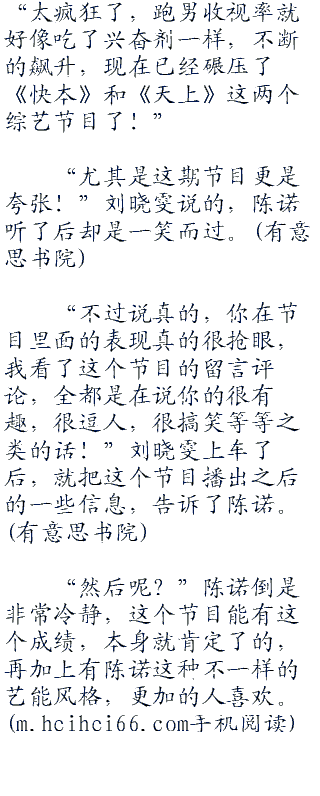 “太疯狂了，跑男收视率就
好像吃了兴奋剂一样，不断
的飙升，现在已经碾压了
《快本》和《天上》这两个
综艺节目了！”
“尤其是这期节目更是
夸张！”刘晓雯说的，陈诺
听了后却是一笑而过。(有意
思书院)
“不过说真的，你在节
目里面的表现真的很抢眼，
我看了这个节目的留言评
论，全都是在说你的很有
趣，很逗人，很搞笑等等之
类的话！”刘晓雯上车了
后，就把这个节目播出之后
的一些信息，告诉了陈诺。
(有意思书院)
“然后呢？”陈诺倒是
非常冷静，这个节目能有这
个成绩，本身就肯定了的，
再加上有陈诺这种不一样的
艺能风格，更加的人喜欢。
(m.hcihci66.com手机阅读)